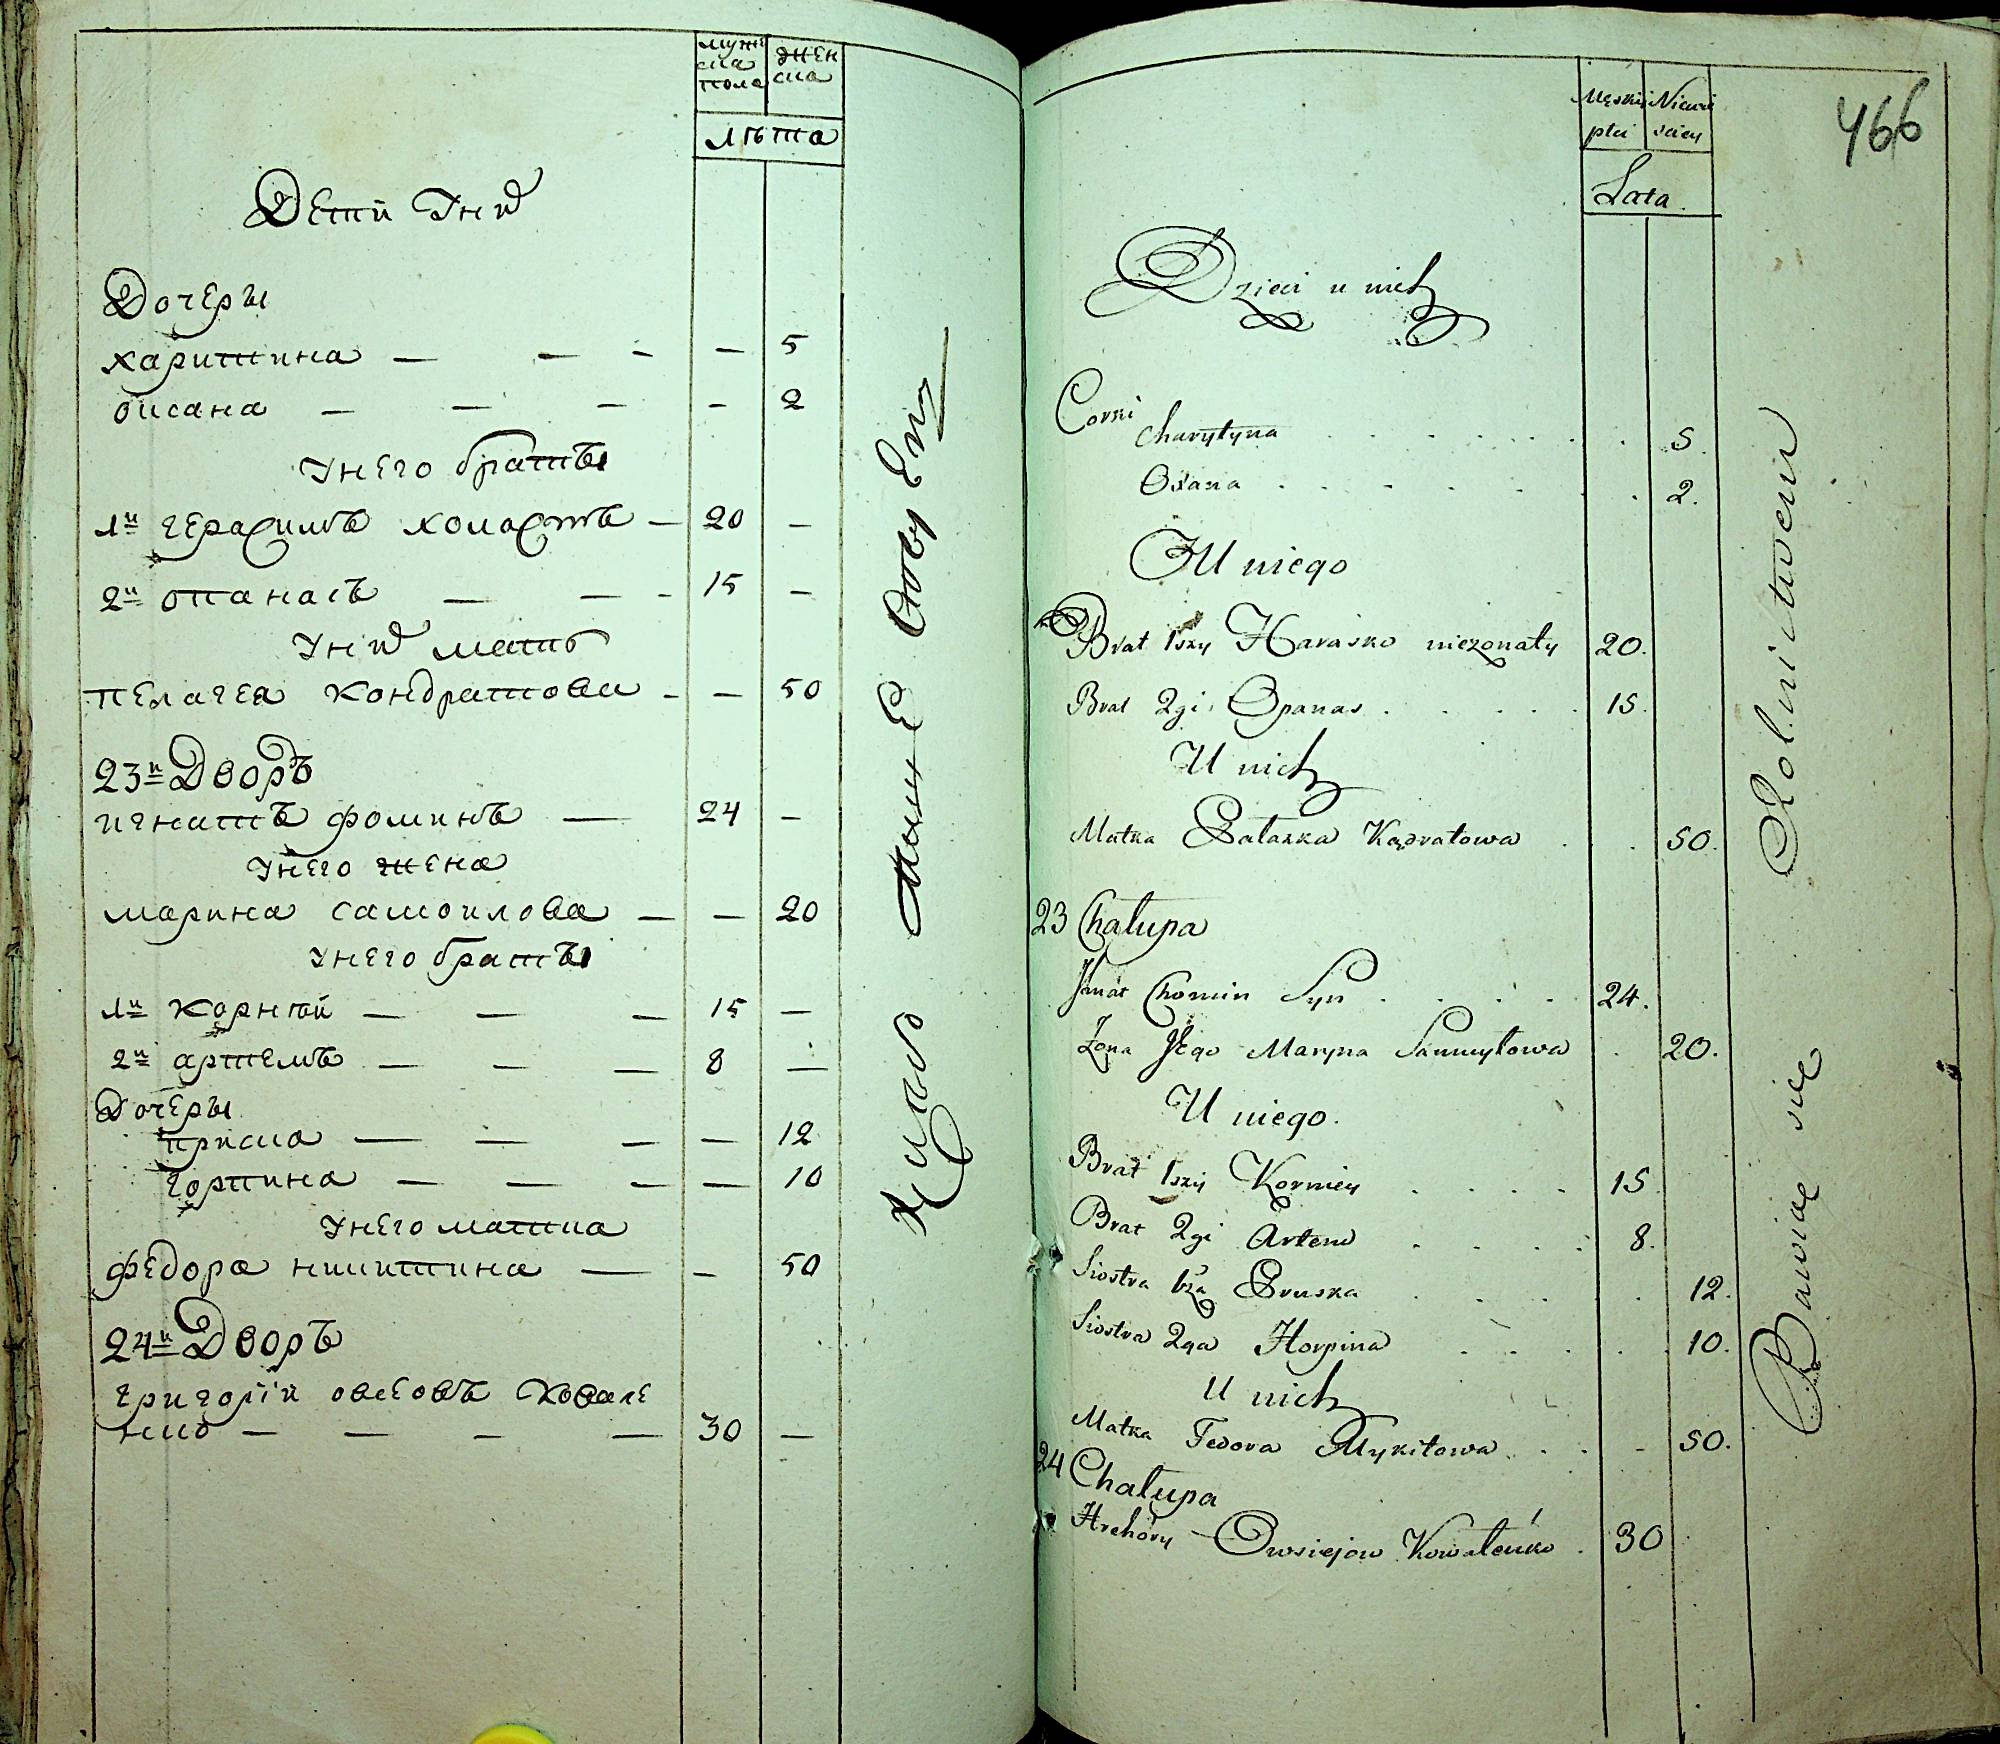 мужеска пола
женска
лѣта
Дети Унихъ
Дочеры
харитина — — — — 5
оксана — — — — 2
Унего братьы
1й герасимъ холостъ — 20 —
2й опанасъ — — — 15 —
Унихъ мать
пелагея кондратова — — 50
23й Дворъ
игнатъ фоминъ — 24 —
Унего жена
марина самоилова — — 20
Унего братьы
1й корнѣй — — — 15 —
2й артемъ — — — 8 —
Дочеры
приска — — — — 12
горпина — — — — 10
Унего матка
федора никитина — — 50
24й Дворъ
григорій овсеовъ ковале
нко — — — — 30 —
Męskiej płci
Niewiściey
Lata.
466
Dzieci u nich
Corki
Charytyna . . . . . . . 5.
Oxana . . . . . . . 2.
U niego
Brat 1szy Harasko niezonaty 20.
Brat 2gi Opanas . . . . . 15.
U nich
Matka Palaszka Kądratowa . . 50.
23 Chałupa
Jhnat Chomin Syn . . . . 24.
Żona Jego Maryna Samuyłowa . 20.
U niego.
Brat 1szy Korniey . . . . 15
Brat 2gi Artem . . . . 8.
Siostra 1sza Pruska . . . . 12.
Siostra 2ga Horpina . . . . . 10.
U nich
Matka Fedora Mykitowa . . . 50.
24 Chałupa
Hrehory Owsiejow Kowaleńko . 30
Bawiąc się Rolnictwem